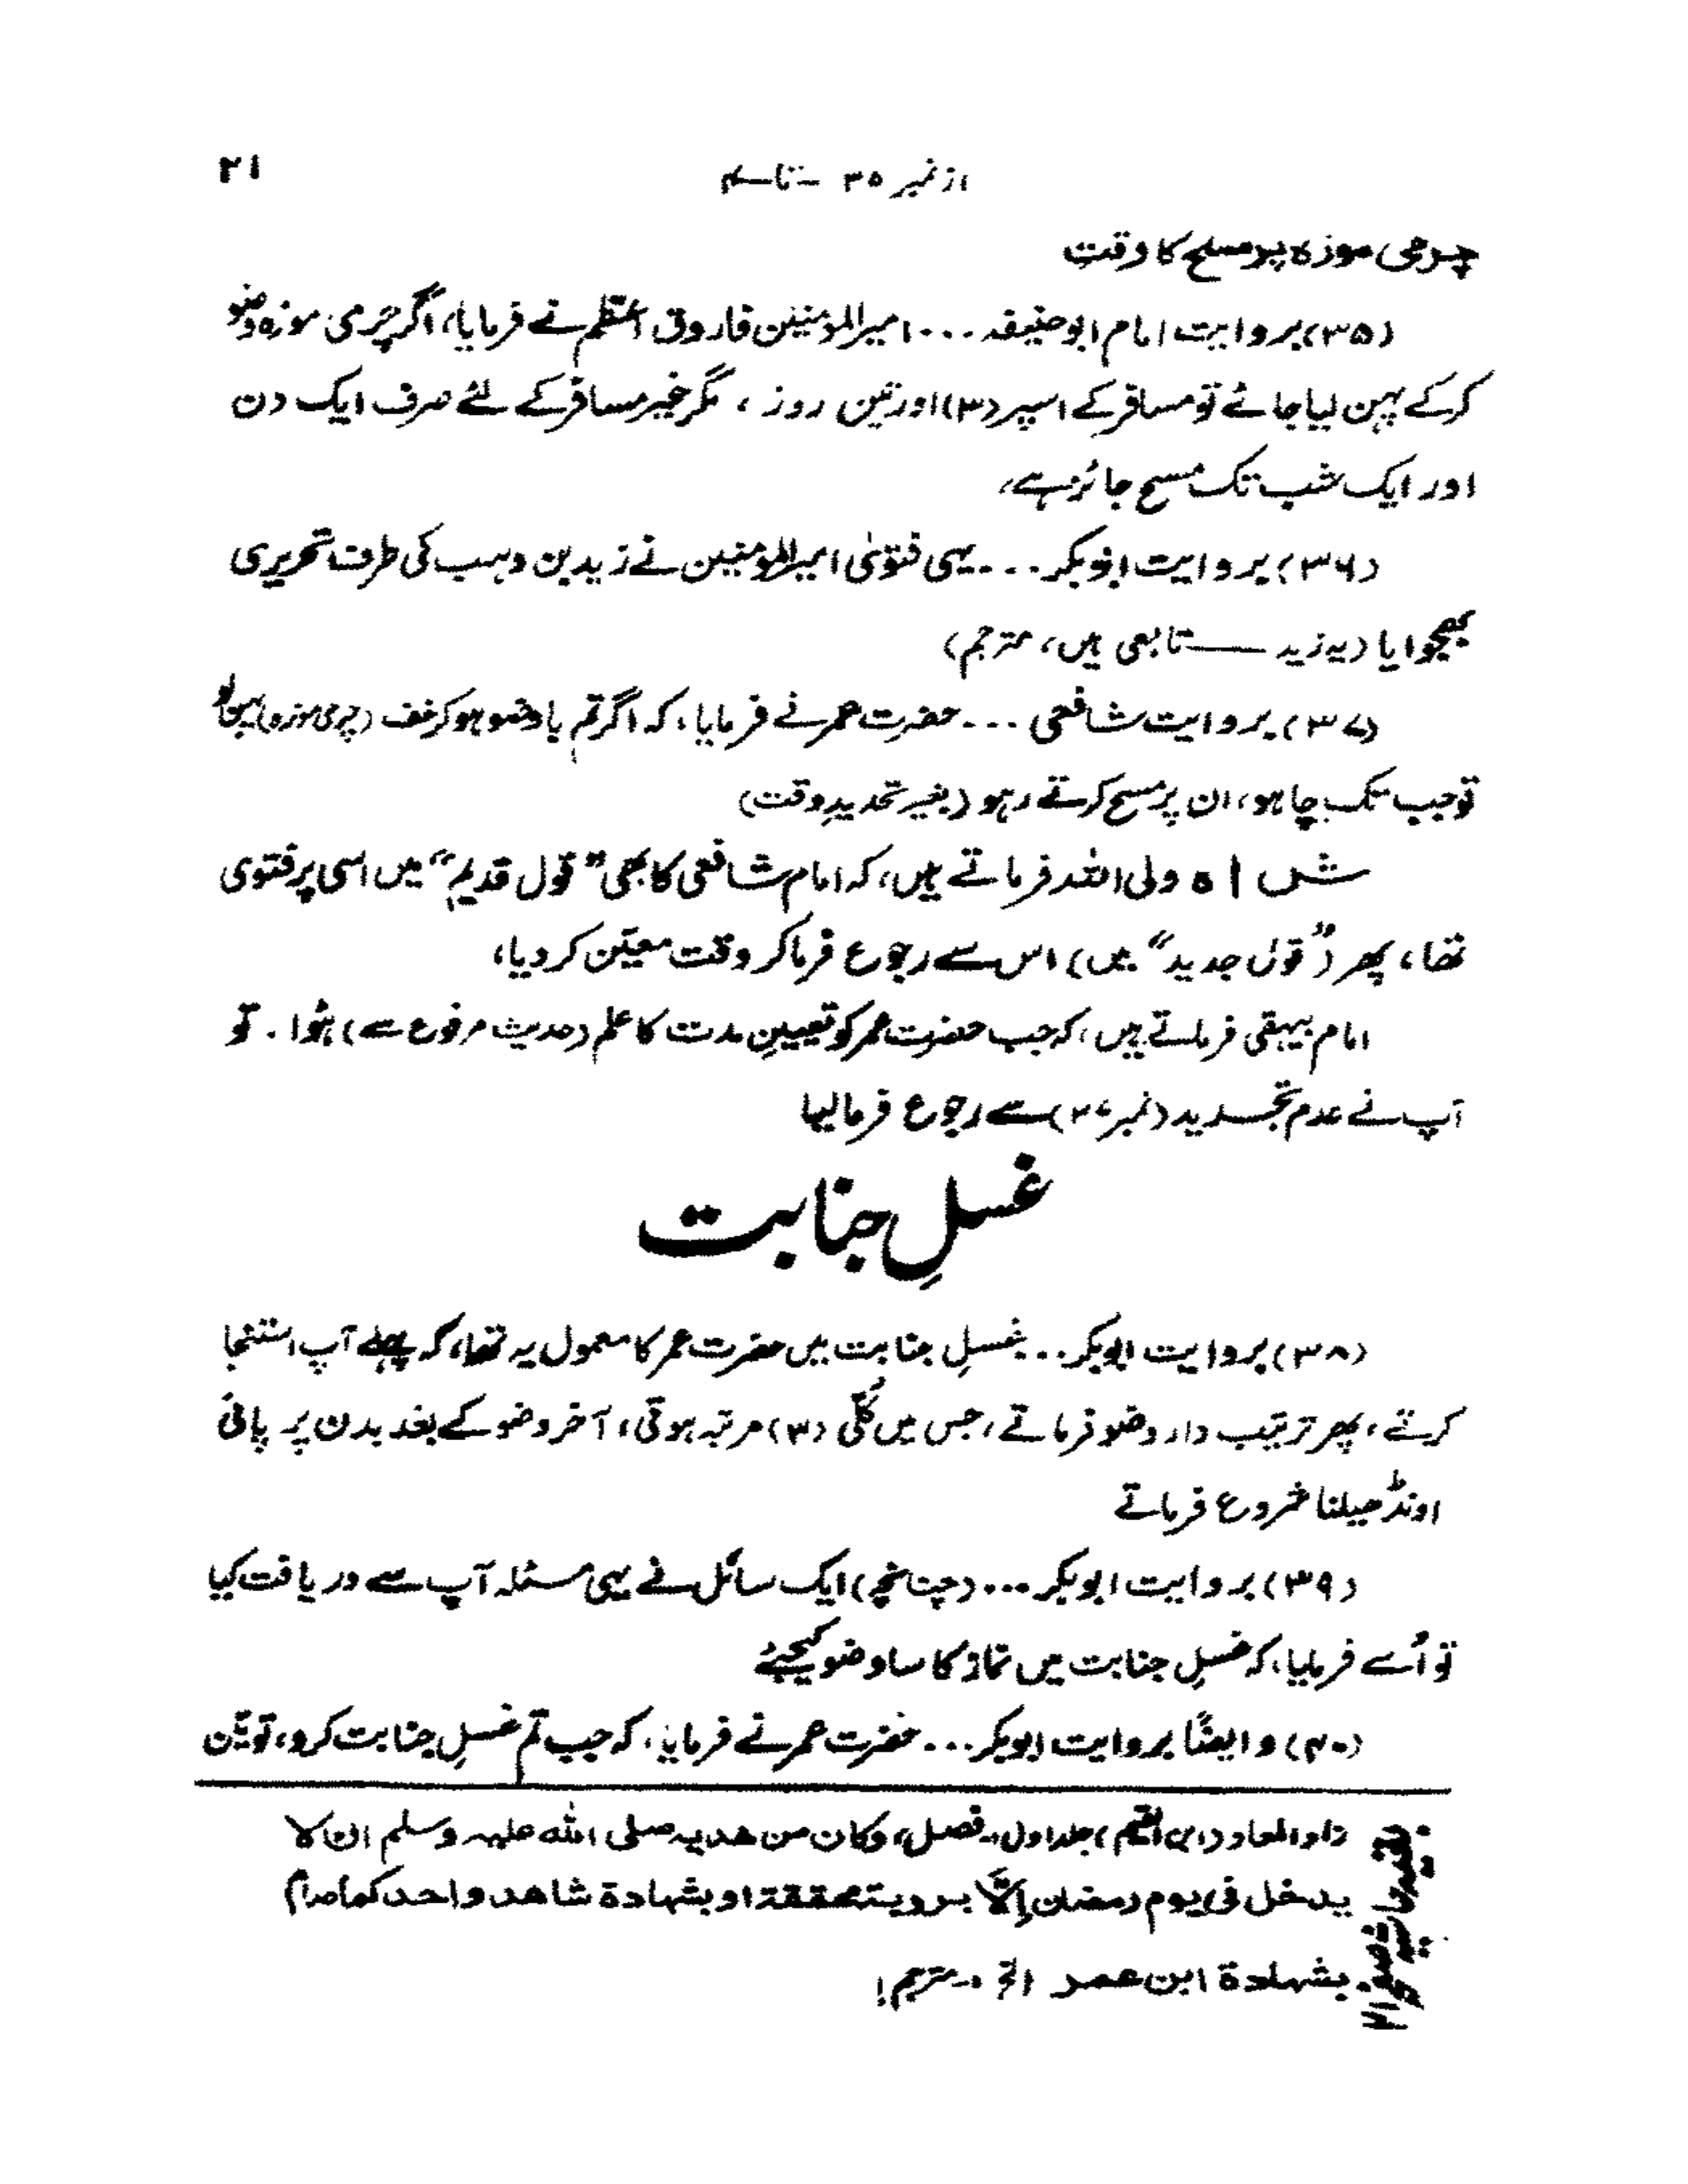 از نمبر ۳۵ تا ۴۰ ۲۱
چرمی موزہ پر مسح کا وقت
(۳۵) بروایت امام ابوحنیفہ ... امیرالمومنین فاروق اعظم نے فرمایا، اگر چرمی موزہ وضو
کرکے پہن لیا جائے تو مسافر کے اسپر (۳) اور تین روز، مگر غیر مسافر کے لئے صرف ایک دن
اور ایک شب تک مسح جائز ہے،
(۳۶) بروایت ابوبکر ... یہی فتویٰ امیرالمومنین نے زید بن وہب کی طرف تحریری
بھجوایا (یہ زید — تابعی ہیں، مترجم)
(۳۷) بروایت شافعی ... حضرت عمر نے فرمایا، کہ اگر تم باوضو ہوکر خف (چرمی موزہ) پہن لو
تو جب تک چاہو، ان پر مسح کرتے رہو (بغیر تحدیدِ وقت)
شاہ ولی اللہ فرماتے ہیں، کہ امام شافعی کا بھی "قول قدیم" میں اسی پر فتویٰ
تھا، پھر ("قول جدید" میں) اس سے رجوع فرماکر وقت معیّن کردیا،
امام بیہقی فرماتے ہیں، کہ جب حضرت عمر کو تعیینِ مدت کا علم (حدیث مرفوع سے) ہُوا. تو
آپ نے عدم تحدید (نمبر ۳۷) سے رجوع فرمالیا
غسلِ جنابت
(۳۸) بروایت ابوبکر ... غسلِ جنابت میں حضرت عمر کا معمول یہ تھا، کہ پہلے آپ استنجا
کرتے، پھر ترتیب وار وضو فرماتے، جس میں کُلّی (۳) مرتبہ ہوتی، آخر وضو کے بعد بدن پر پانی
اونڈھیلنا شروع فرماتے
(۳۹) بروایت ابوبکر ... (چنانچہ) ایک سائل نے یہی مسئلہ آپ سے دریافت کیا
تو اُسے فرمایا، کہ غسلِ جنابت میں نماز کا سا وضو کیجئے
(۴۰) و ایضًا بروایت ابوبکر ... حضرت عمر نے فرمایا، کہ جب تم غسلِ جنابت کرو، تو تین
زاد المعاد (ابن القیم) جلد اول، فصل، وکان من ھدیہ صلی اللہ علیہ وسلم ان لا
یدخل فی یوم رمضان اِلَّا برویتہ محققۃ او بشہادۃ شاھد واحد کما صام
بشہادۃ ابن عمر الخ - مترجم!